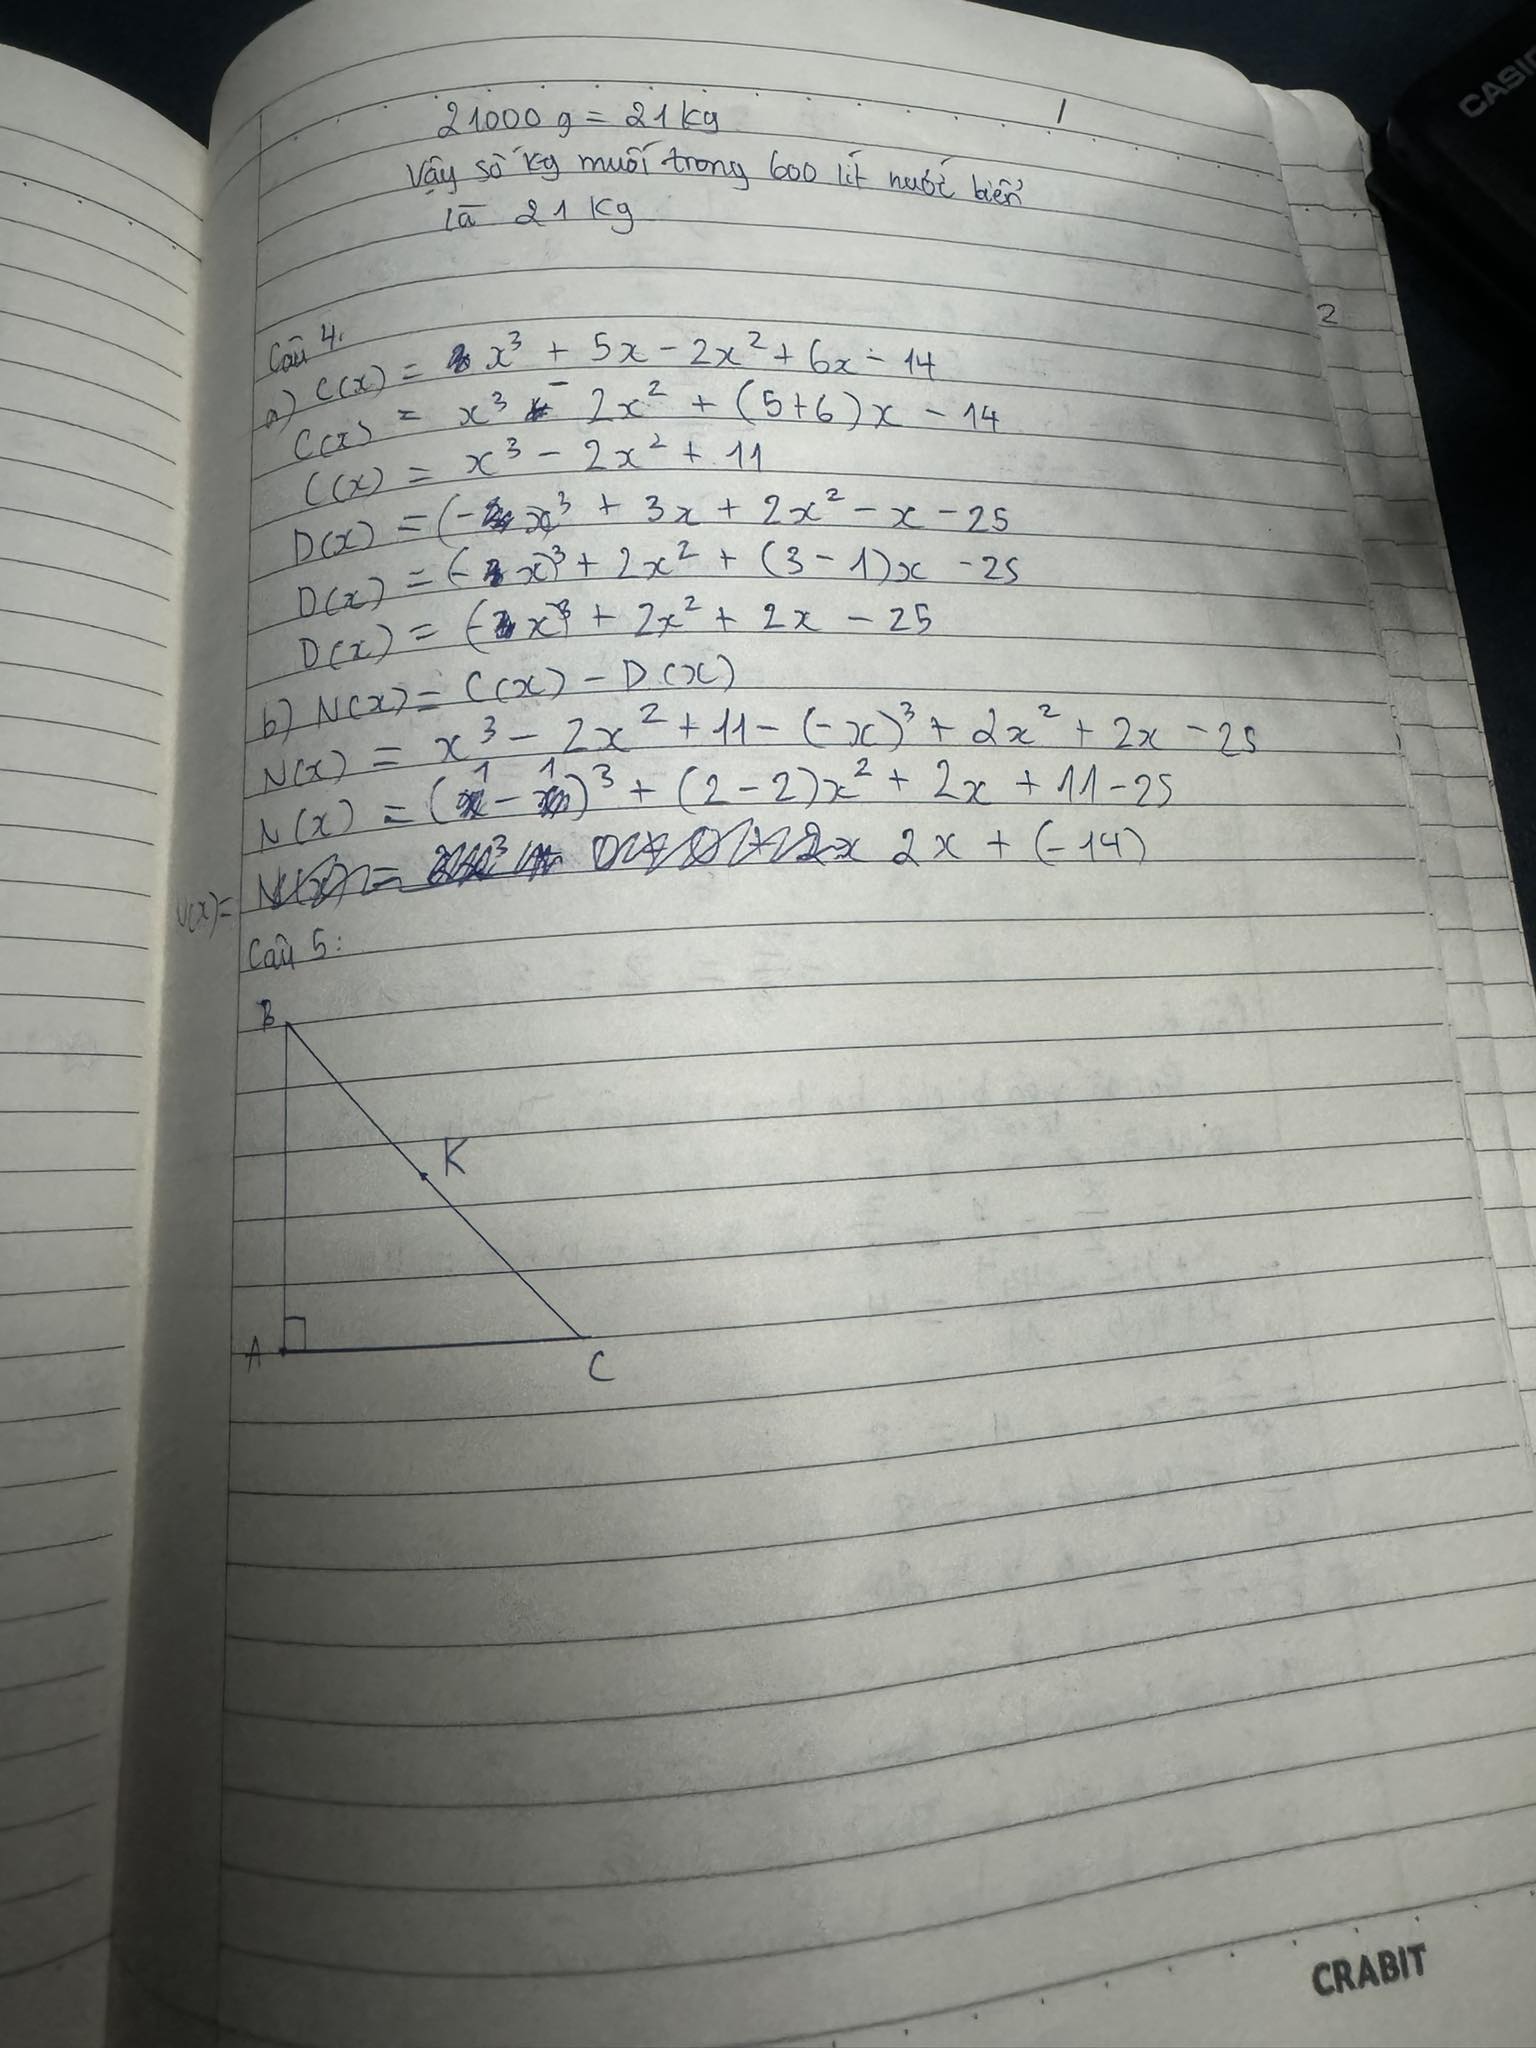 CASIO
21000 g = 21 kg
1
Vậy số kg muối trong 600 lít nước biển
là 21 kg
2
Câu 4.
a) C(x) = x³ + 5x - 2x² + 6x - 14
C(x) = x³ - 2x² + (5+6)x - 14
C(x) = x³ - 2x² + 11
D(x) = (-x)³ + 3x + 2x² - x - 25
D(x) = (-x)³ + 2x² + (3-1)x - 25
D(x) = (-x)³ + 2x² + 2x - 25
b) N(x) = C(x) - D(x)
N(x) = x³ - 2x² + 11 - (-x)³ + 2x² + 2x - 25
N(x) = (1 - 1)³ + (2-2)x² + 2x + 11 - 25
N(x) = 2x + (-14)
Câu 5:
B
K
A
C
CRABIT